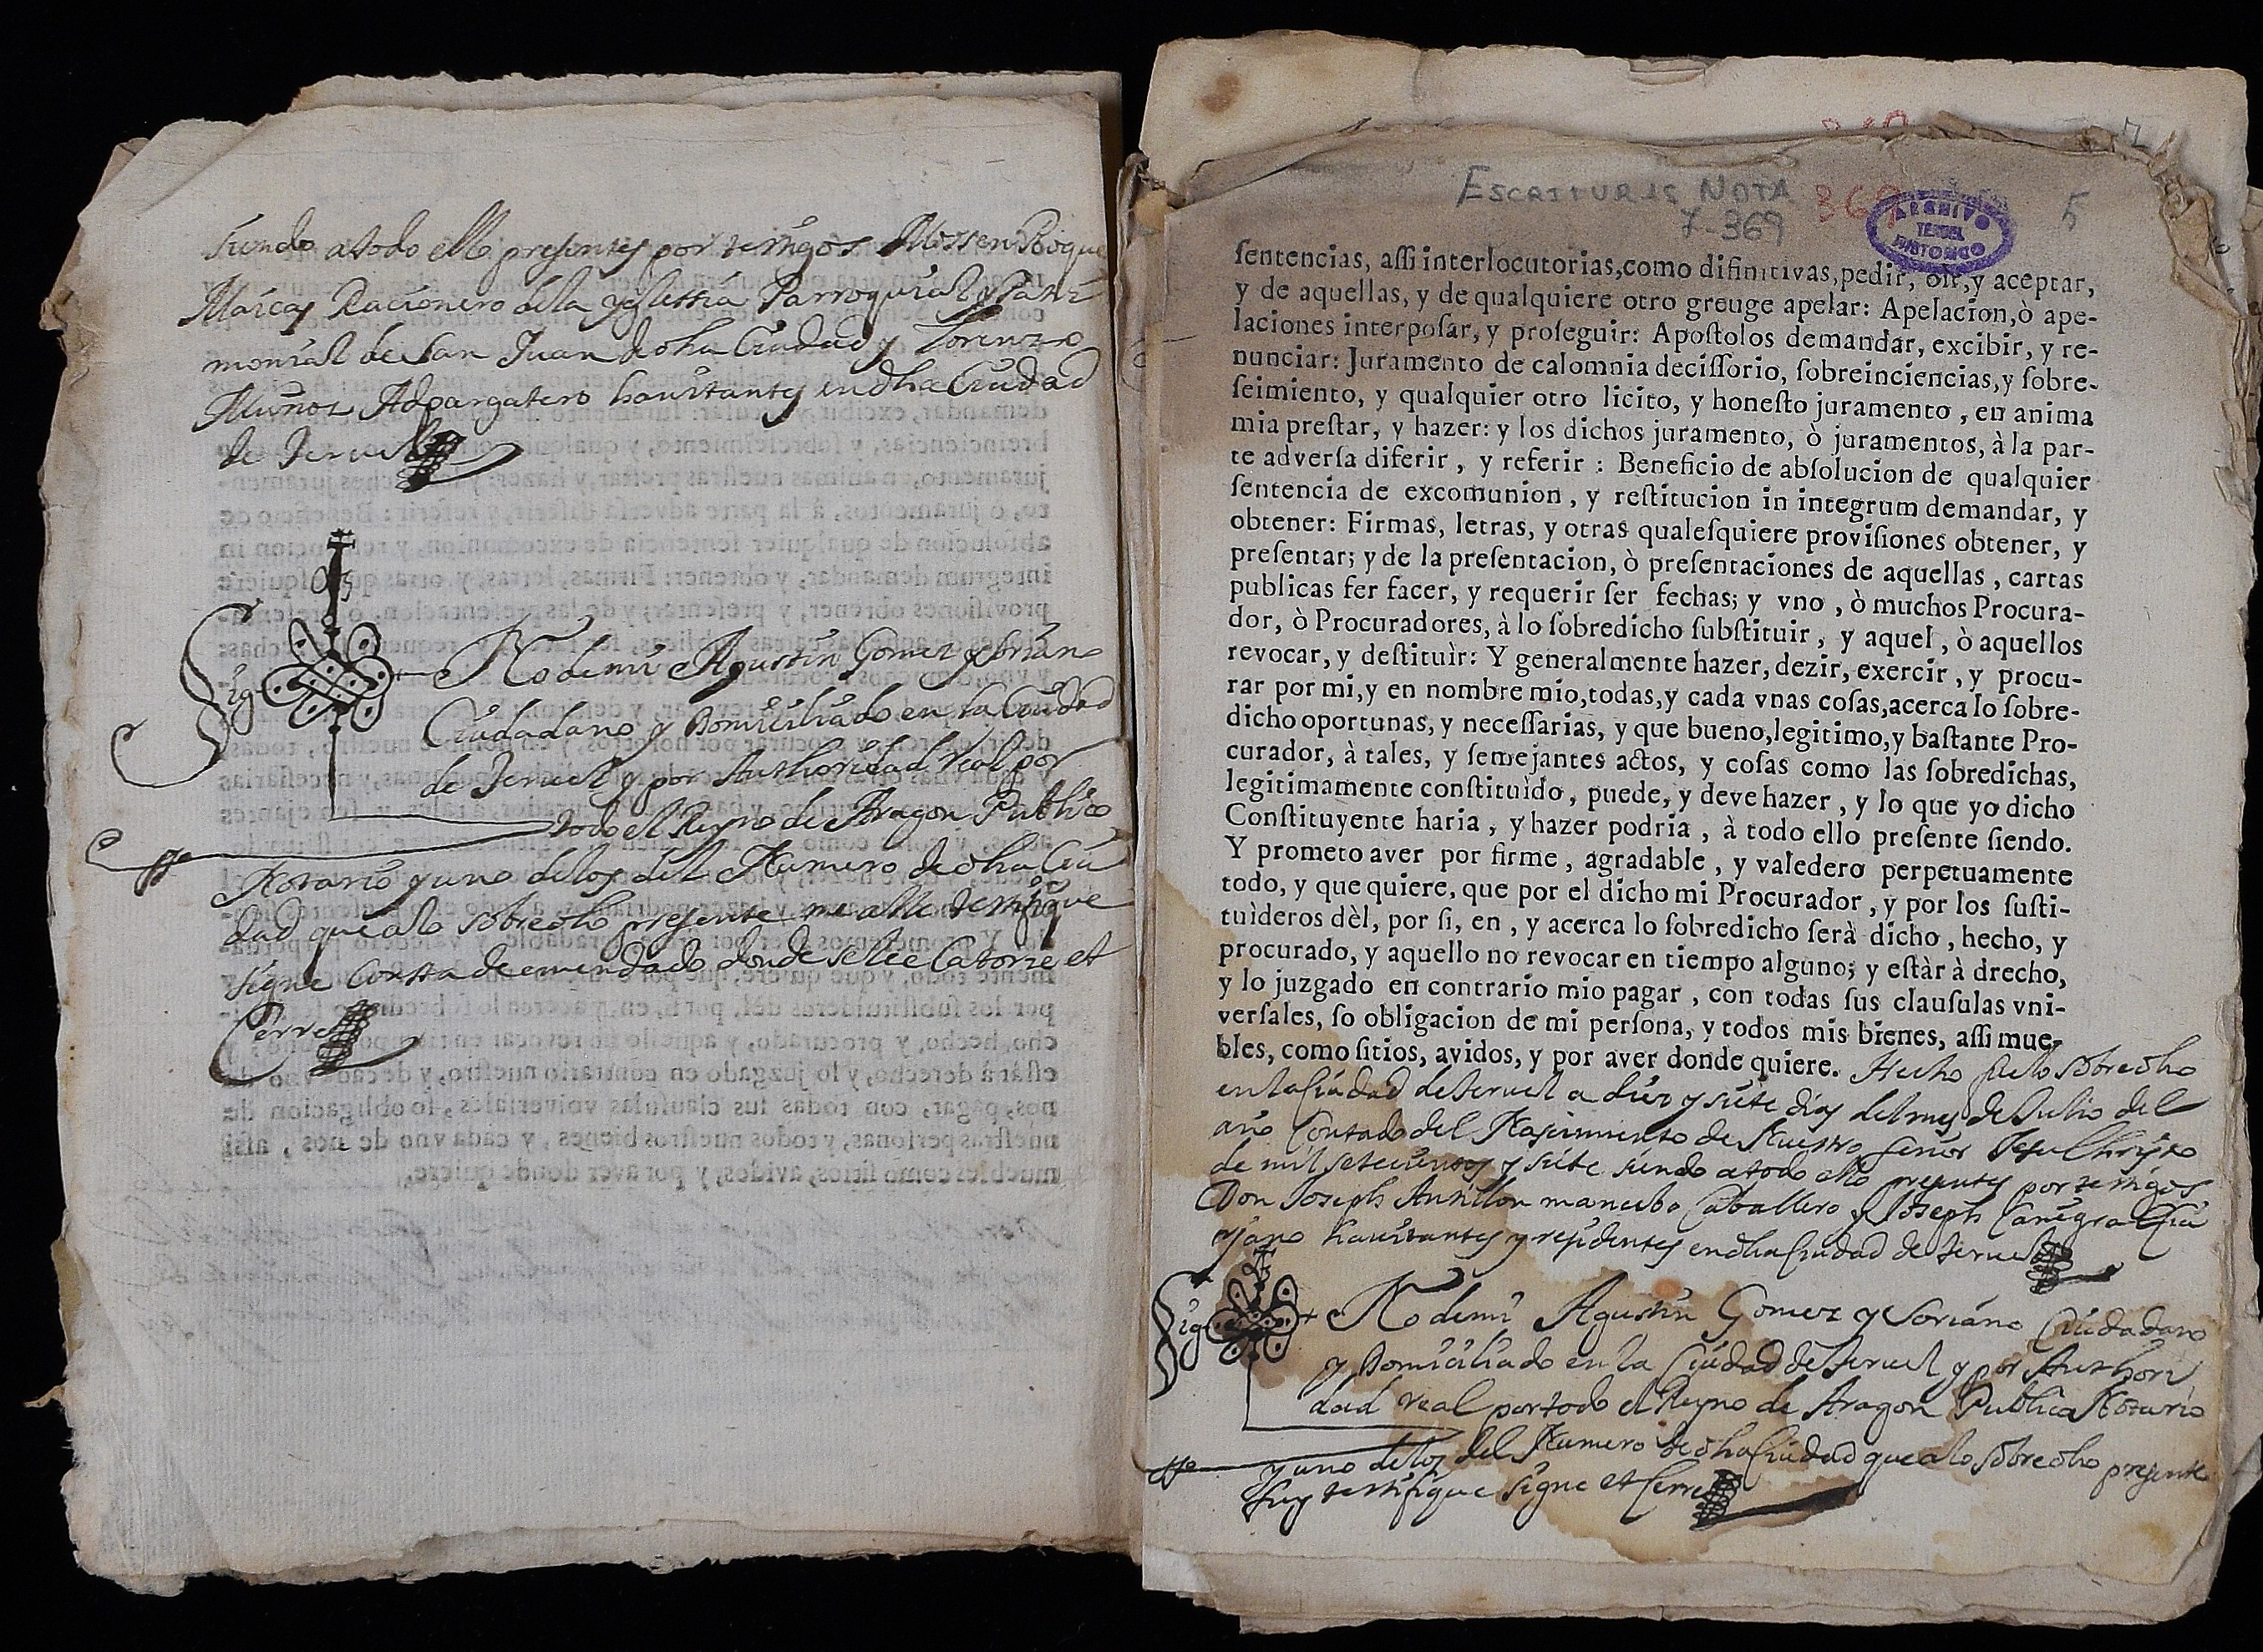 siendo a todo ello presentes por testigos Mossen Roque
Marcas Racionero dela yglessia Parroquial y Patri
monial de San Juan de dha Ciudad y Lorenzo
Muñoz Alpargatero hauitantes en dha Ciudad
de Teruel
Sig No de mi Agustin Gomez y Soriano
Ciudadano y Domiciliado en la Ciudad
de Teruel y por Authoridad Real por
todo el Reyno de Aragon Publico
Notario y uno delos del Numero de dha Ciu
dad que alo sobredho presente me alle testifique
signe Consta de emendado donde se lee Catorze et
Cerre
ESCRITURAS NOTA 369
7-369
5
ARCHIVO
TERUEL
HISTORICO
ſentencias, aſſi interlocutorias, como difinitivas, pedir, oir, y aceptar,
y de aquellas, y de qualquiere otro greuge apelar: Apelacion, ò ape-
laciones interpoſar, y proſeguir: Apoſtolos demandar, excibir, y re-
nunciar: Juramento de calomnia deciſſorio, ſobreinciencias, y ſobre-
ſeimiento, y qualquier otro licito, y honeſto juramento, en anima
mia preſtar, y hazer: y los dichos juramento, ò juramentos, à la par-
te adverſa diferir, y referir: Beneficio de abſolucion de qualquier
ſentencia de excomunion, y reſtitucion in integrum demandar, y
obtener: Firmas, letras, y otras qualeſquiere proviſiones obtener, y
preſentar; y de la preſentacion, ò preſentaciones de aquellas, cartas
publicas fer facer, y requerir ſer fechas; y vno, ò muchos Procura-
dor, ò Procuradores, à lo ſobredicho ſubſtituir, y aquel, ò aquellos
revocar, y deſtituìr: Y generalmente hazer, dezir, exercir, y procu-
rar por mi, y en nombre mio, todas, y cada vnas coſas, acerca lo ſobre-
dicho oportunas, y neceſſarias, y que bueno, legitimo, y baſtante Pro-
curador, à tales, y ſemejantes actos, y coſas como las ſobredichas,
legitimamente conſtituìdo, puede, y deve hazer, y lo que yo dicho
Conſtituyente haria, y hazer podria, à todo ello preſente ſiendo.
Y prometo aver por firme, agradable, y valedero perpetuamente
todo, y que quiere, que por el dicho mi Procurador, y por los ſuſti-
tuìderos dèl, por ſi, en, y acerca lo ſobredicho ſerà dicho, hecho, y
procurado, y aquello no revocar en tiempo alguno; y eſtàr à drecho,
y lo juzgado en contrario mio pagar, con todas ſus clauſulas vni-
verſales, ſo obligacion de mi perſona, y todos mis bienes, aſſi mue-
bles, como ſitios, avidos, y por aver donde quiere. Hecho fue lo sobredho
en la Ciudad de Teruel a diez y siete dias del mes de Julio del
año Contado del Nasimiento de Nuestro Señor Jesu Christo
de mil setecientos y siete siendo a todo ello presentes por testigos
Don Joseph Antillon mancebo Caballero y Joseph Cañigral Ciru
jano hauitantes y residentes en dha Ciudad de Teruel
Sig No de mi Agustin Gomez y Soriano Ciudadano
y Domiciliado en la Ciudad de Teruel y por Authori
dad real por todo el Reyno de Aragon Publico Notario
y uno delos del Numero de dha Ciudad que alo sobredho presente
fuy testifique signe et Cerre